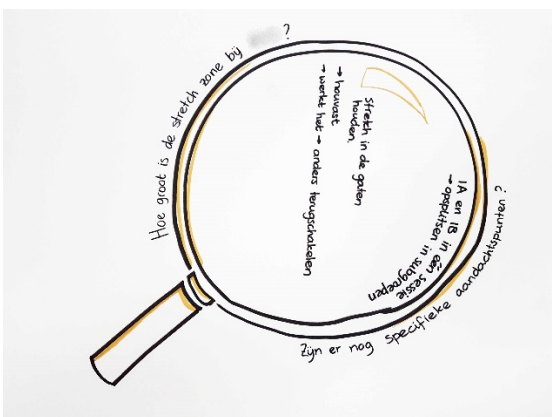 Hoe groot is de stretch zone bij ?
Stretch in de gaten
houden,
→ houvast
→ werkt het → anders terugschakelen
1A en 1B in één sessie
→ opsplitsen in subgroepen
Zijn er nog specifieke aandachtspunten?